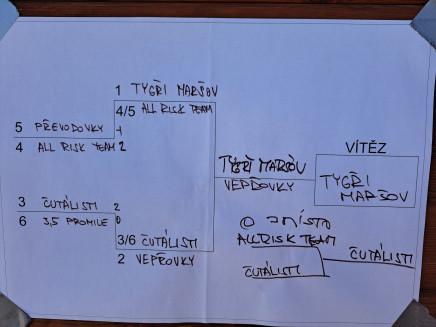 1 TYGŘI MARŠOV
4/5 ALL RISK TEAM
5 PŘEVODOVKY 1
4 ALL RISK TEAM 2
TYGŘI MARŠOV
VEPŘOVKY
VÍTĚZ
TYGŘI
MARŠOV
3 ČUTÁLISTI 2
6 3,5 PROMILE 0
3/6 ČUTÁLISTI
2 VEPŘOVKY
O 3 MÍSTO
ALL RISK TEAM
ČUTÁLISTI
ČUTÁLISTI